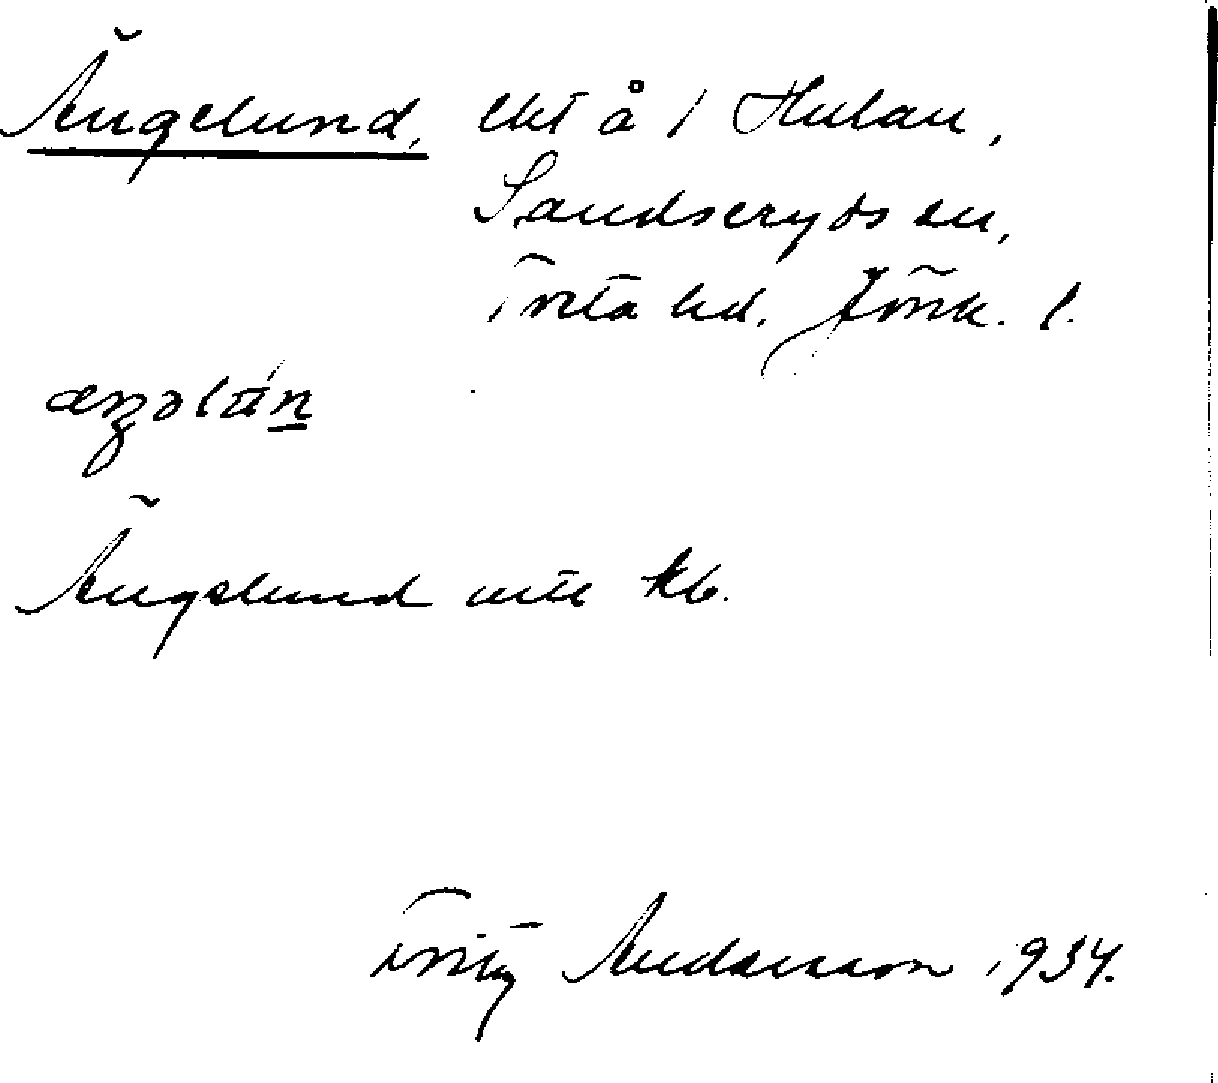 Ängelund, lht å 1 Hulan,
Sandseryds sn,
Tveta hd. Jönk. l.
Ängelund kb.
Fritz Andersson 1934.